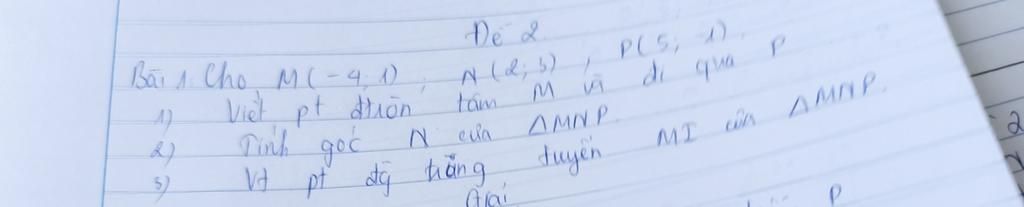 Đề 2
Bài 1. Cho M(-4; 1), N(2; 3), P(5; 1).
1) Viết pt đtròn tâm M và đi qua P
2) Tính góc N của ΔMNP
3) Vt pt đg trung tuyến MI của ΔMNP.
Giải
P
2